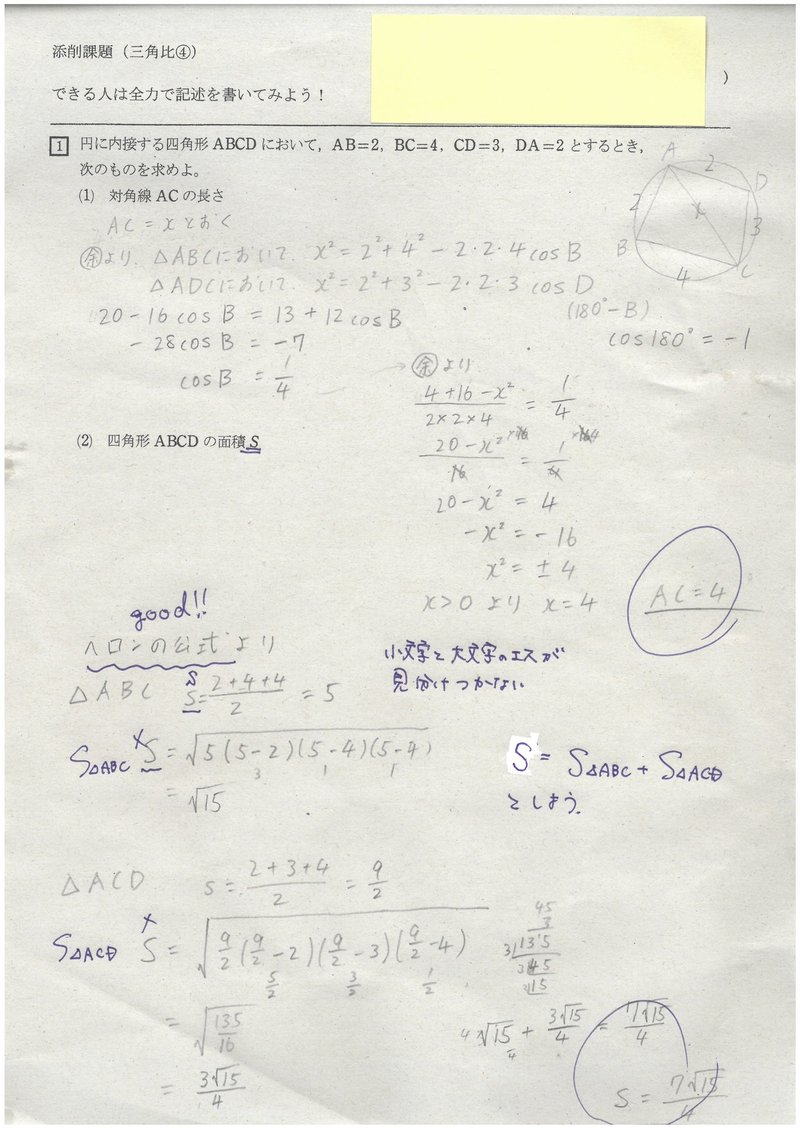 添削課題（三角比④）
)
できる人は全力で記述を書いてみよう！
1 円に内接する四角形 ABCD において，AB=2，BC=4，CD=3，DA=2 とするとき，
次のものを求めよ。
(1) 対角線 AC の長さ
A
2
D
2
x
3
B
4
C
AC = x とおく
余より, △ABCにおいて x² = 2² + 4² - 2・2・4 cos B
△ADCにおいて x² = 2² + 3² - 2・2・3 cos D
(180° - B)
20 - 16 cos B = 13 + 12 cos B
cos 180° = -1
- 28 cos B = -7
cos B = 1/4
余より
(4+16-x²)/(2×2×4) = 1/4
(20-x²)/16 = 1/4
20 - x² = 4
-x² = -16
x² = ± 4
x>0 より x = 4
AC = 4
(2) 四角形 ABCD の面積 S
good!!
ヘロンの公式より
△ABC s = (2+4+4)/2 = 5
小文字と大文字のエスが
見分けつかない
S△ABC × S = √(5(5-2)(5-4)(5-4))
3 1 1
= √15
S = S△ABC + S△ACD
としよう.
△ACD s = (2+3+4)/2 = 9/2
S△ACD × S = √(9/2(9/2-2)(9/2-3)(9/2-4))
5/2 3/2 1/2
= √(135/16)
= 3√15/4
45
3
3)135
3)45
15
4√15/4 + 3√15/4 = 7√15/4
S = 7√15/4